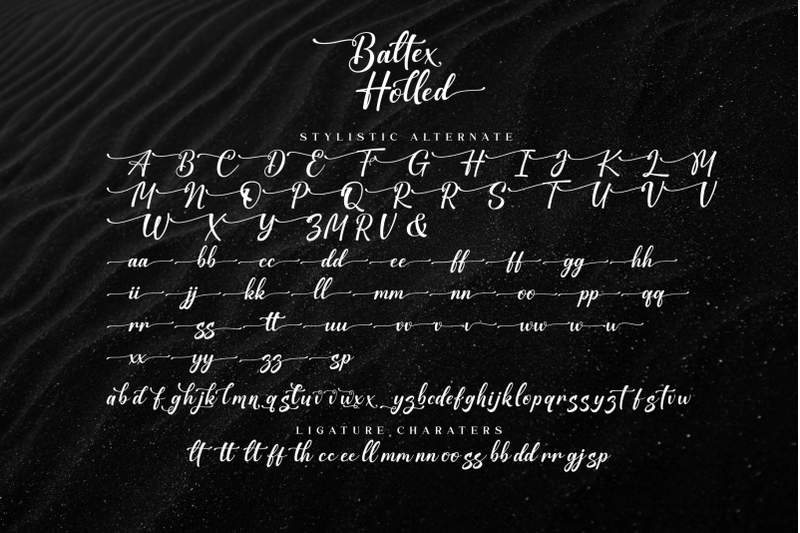 Baltex
Holled
STYLISTIC ALTERNATE
A B C D E F G H I J K L M
M N O P Q R R S T U V V
W X Y Z M R V &
aa bb cc dd ee ff ff gg hh
ii jj kk ll mm nn oo pp qq
rr ss tt uu vv v v ww w u
xx yy zz sp
LIGATURE CHARATERS
lt tt lt ff th cc ee ll mm nn oo ss bb dd rr gj sp